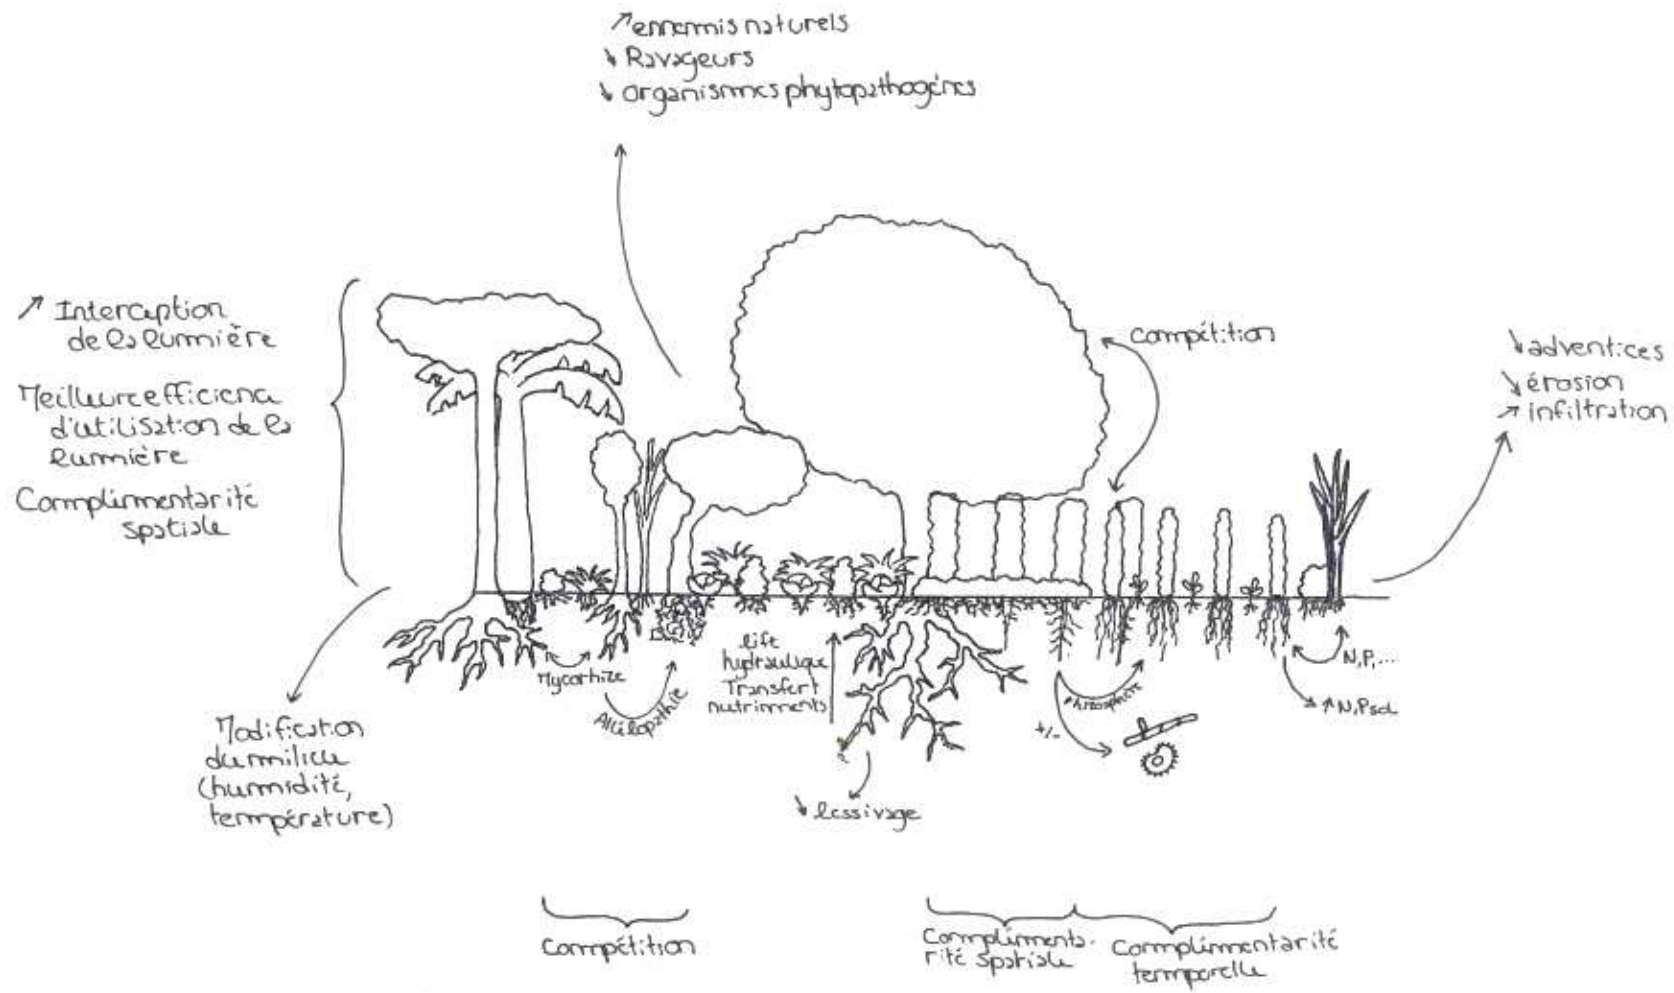 ↗ ennemis naturels
↘ Ravageurs
↘ organismes phytopathogènes
↗ Interception
de la lumière
Meilleure efficience
d'utilisation de la
lumière
Complémentarité
spatiale
Compétition
↘ adventices
↘ érosion
↗ infiltration
Mycorhize
Allélopathie
lift
hydraulique
Transfert
nutriments
rhizosphère
+/-
N,P,...
↗ N,P sol
Modification
du milieu
(humidité,
température)
↘ lessivage
Compétition
Complémenta-
rité spatiale
Complémentarité
temporelle